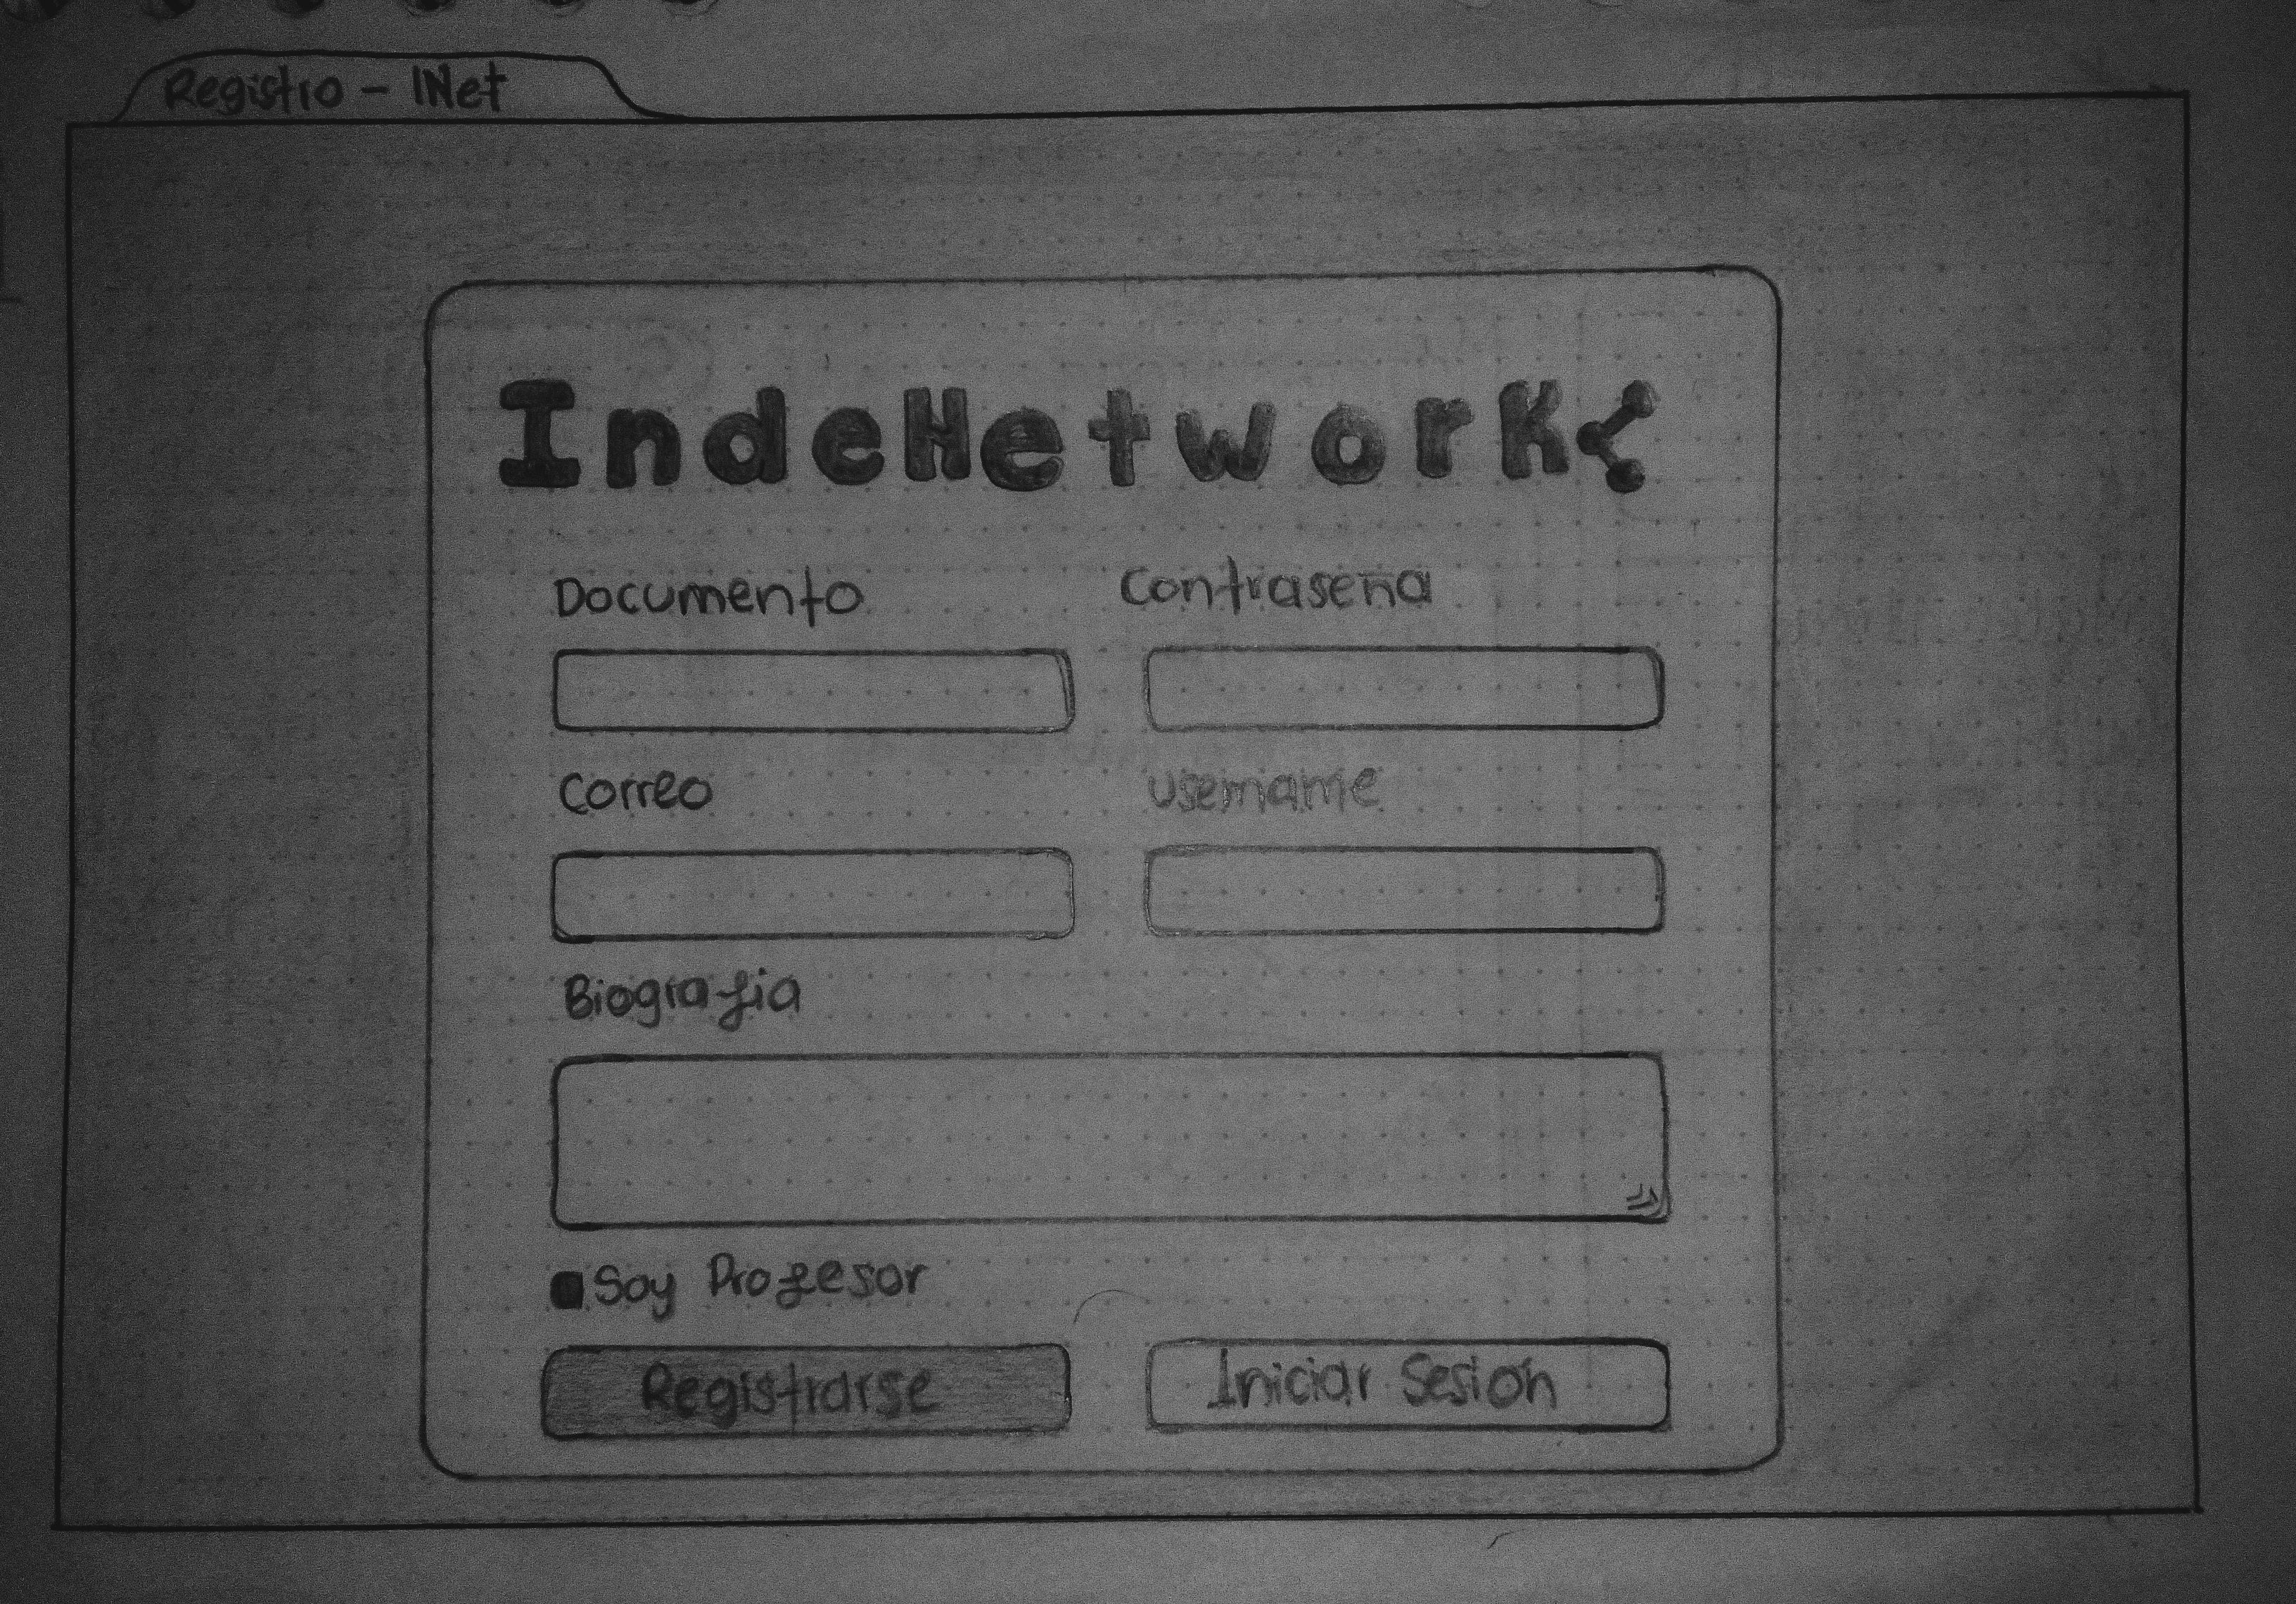 Registro - INet
IndeNetwork
Documento
Contraseña
Correo
username
Biografia
Soy Profesor
Registrarse
Iniciar Sesión